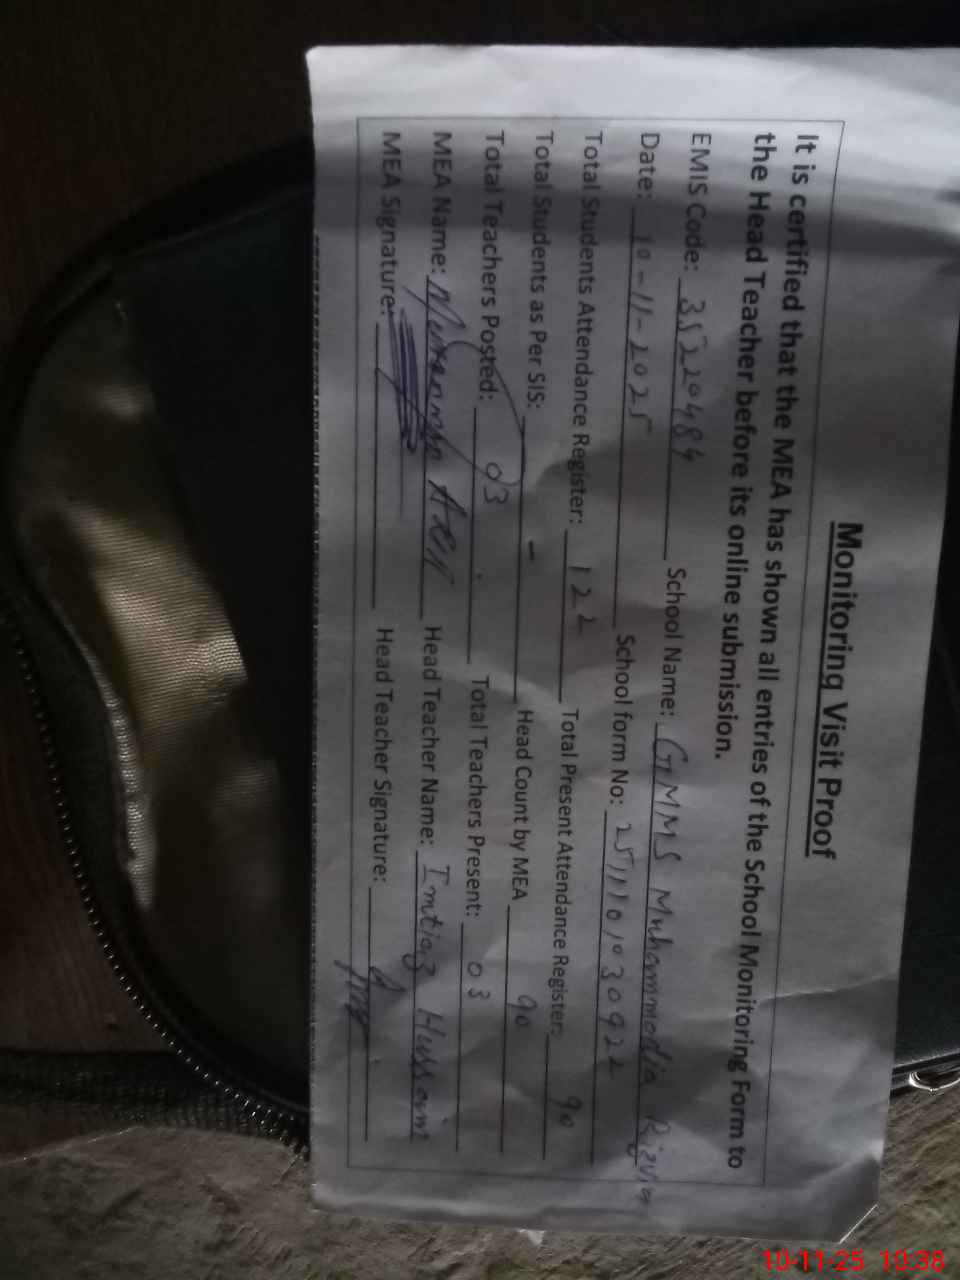 Monitoring Visit Proof
It is certified that the MEA has shown all entries of the School Monitoring Form to
the Head Teacher before its online submission.
EMIS Code: 35220484 School Name: GMMS Muhammadia Rizvia
Date: 10-11-2025 School form No: 2511101030922
Total Students Attendance Register: 122 Total Present Attendance Register: 90
Total Students as Per SIS: - Head Count by MEA 90
Total Teachers Posted: 03 Total Teachers Present: 03
MEA Name: Head Teacher Name: Imtiaz Hussain
MEA Signature: Head Teacher Signature:
10-11-25 10:38